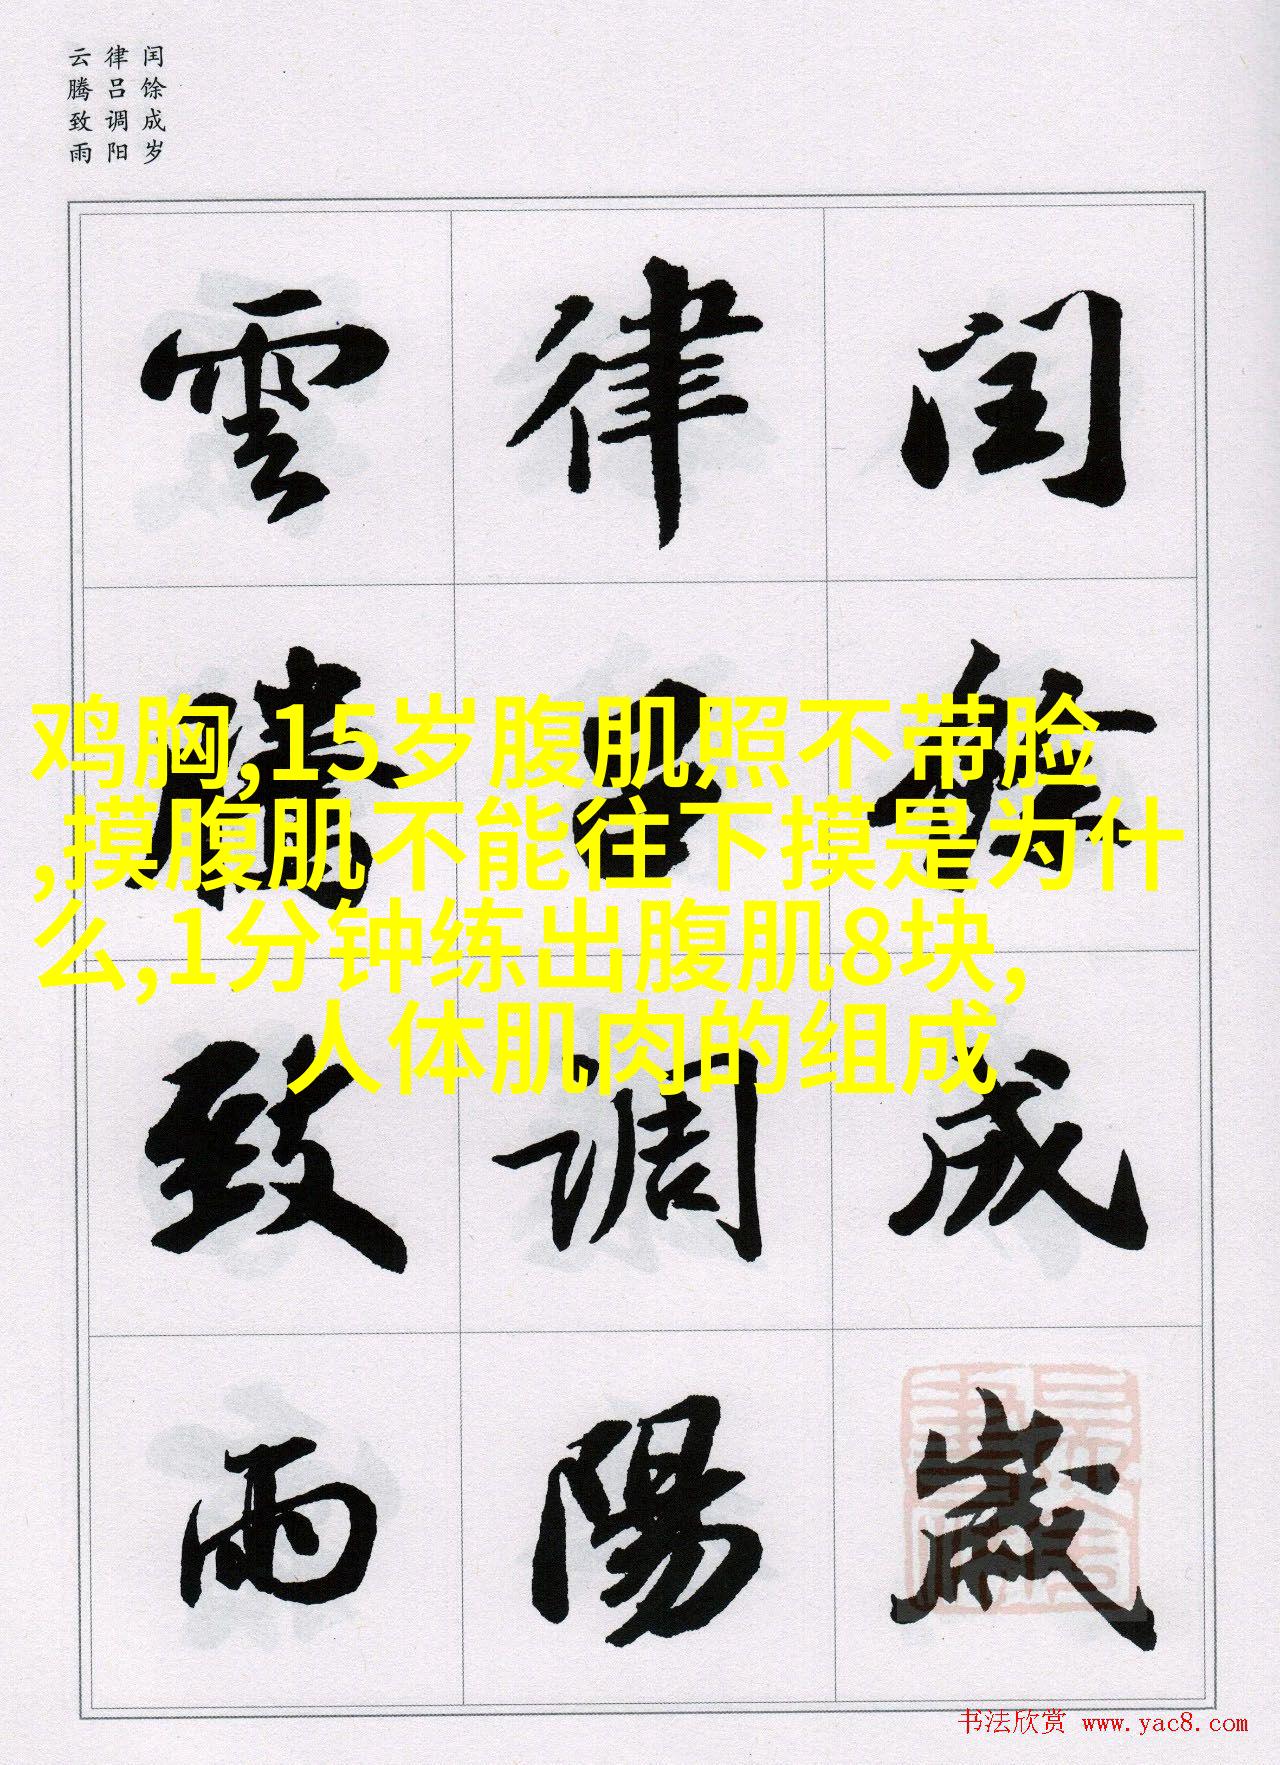 闰馀成岁
律吕调阳
云腾致雨
闰馀成歲
律吕调陽
雲腾致雨
鸡胸,15岁腹肌照不带脸
,摸腹肌不能往下摸是为什
么,1分钟练出腹肌8块,
人体肌肉的组成
书法欣赏 www.yac8.com